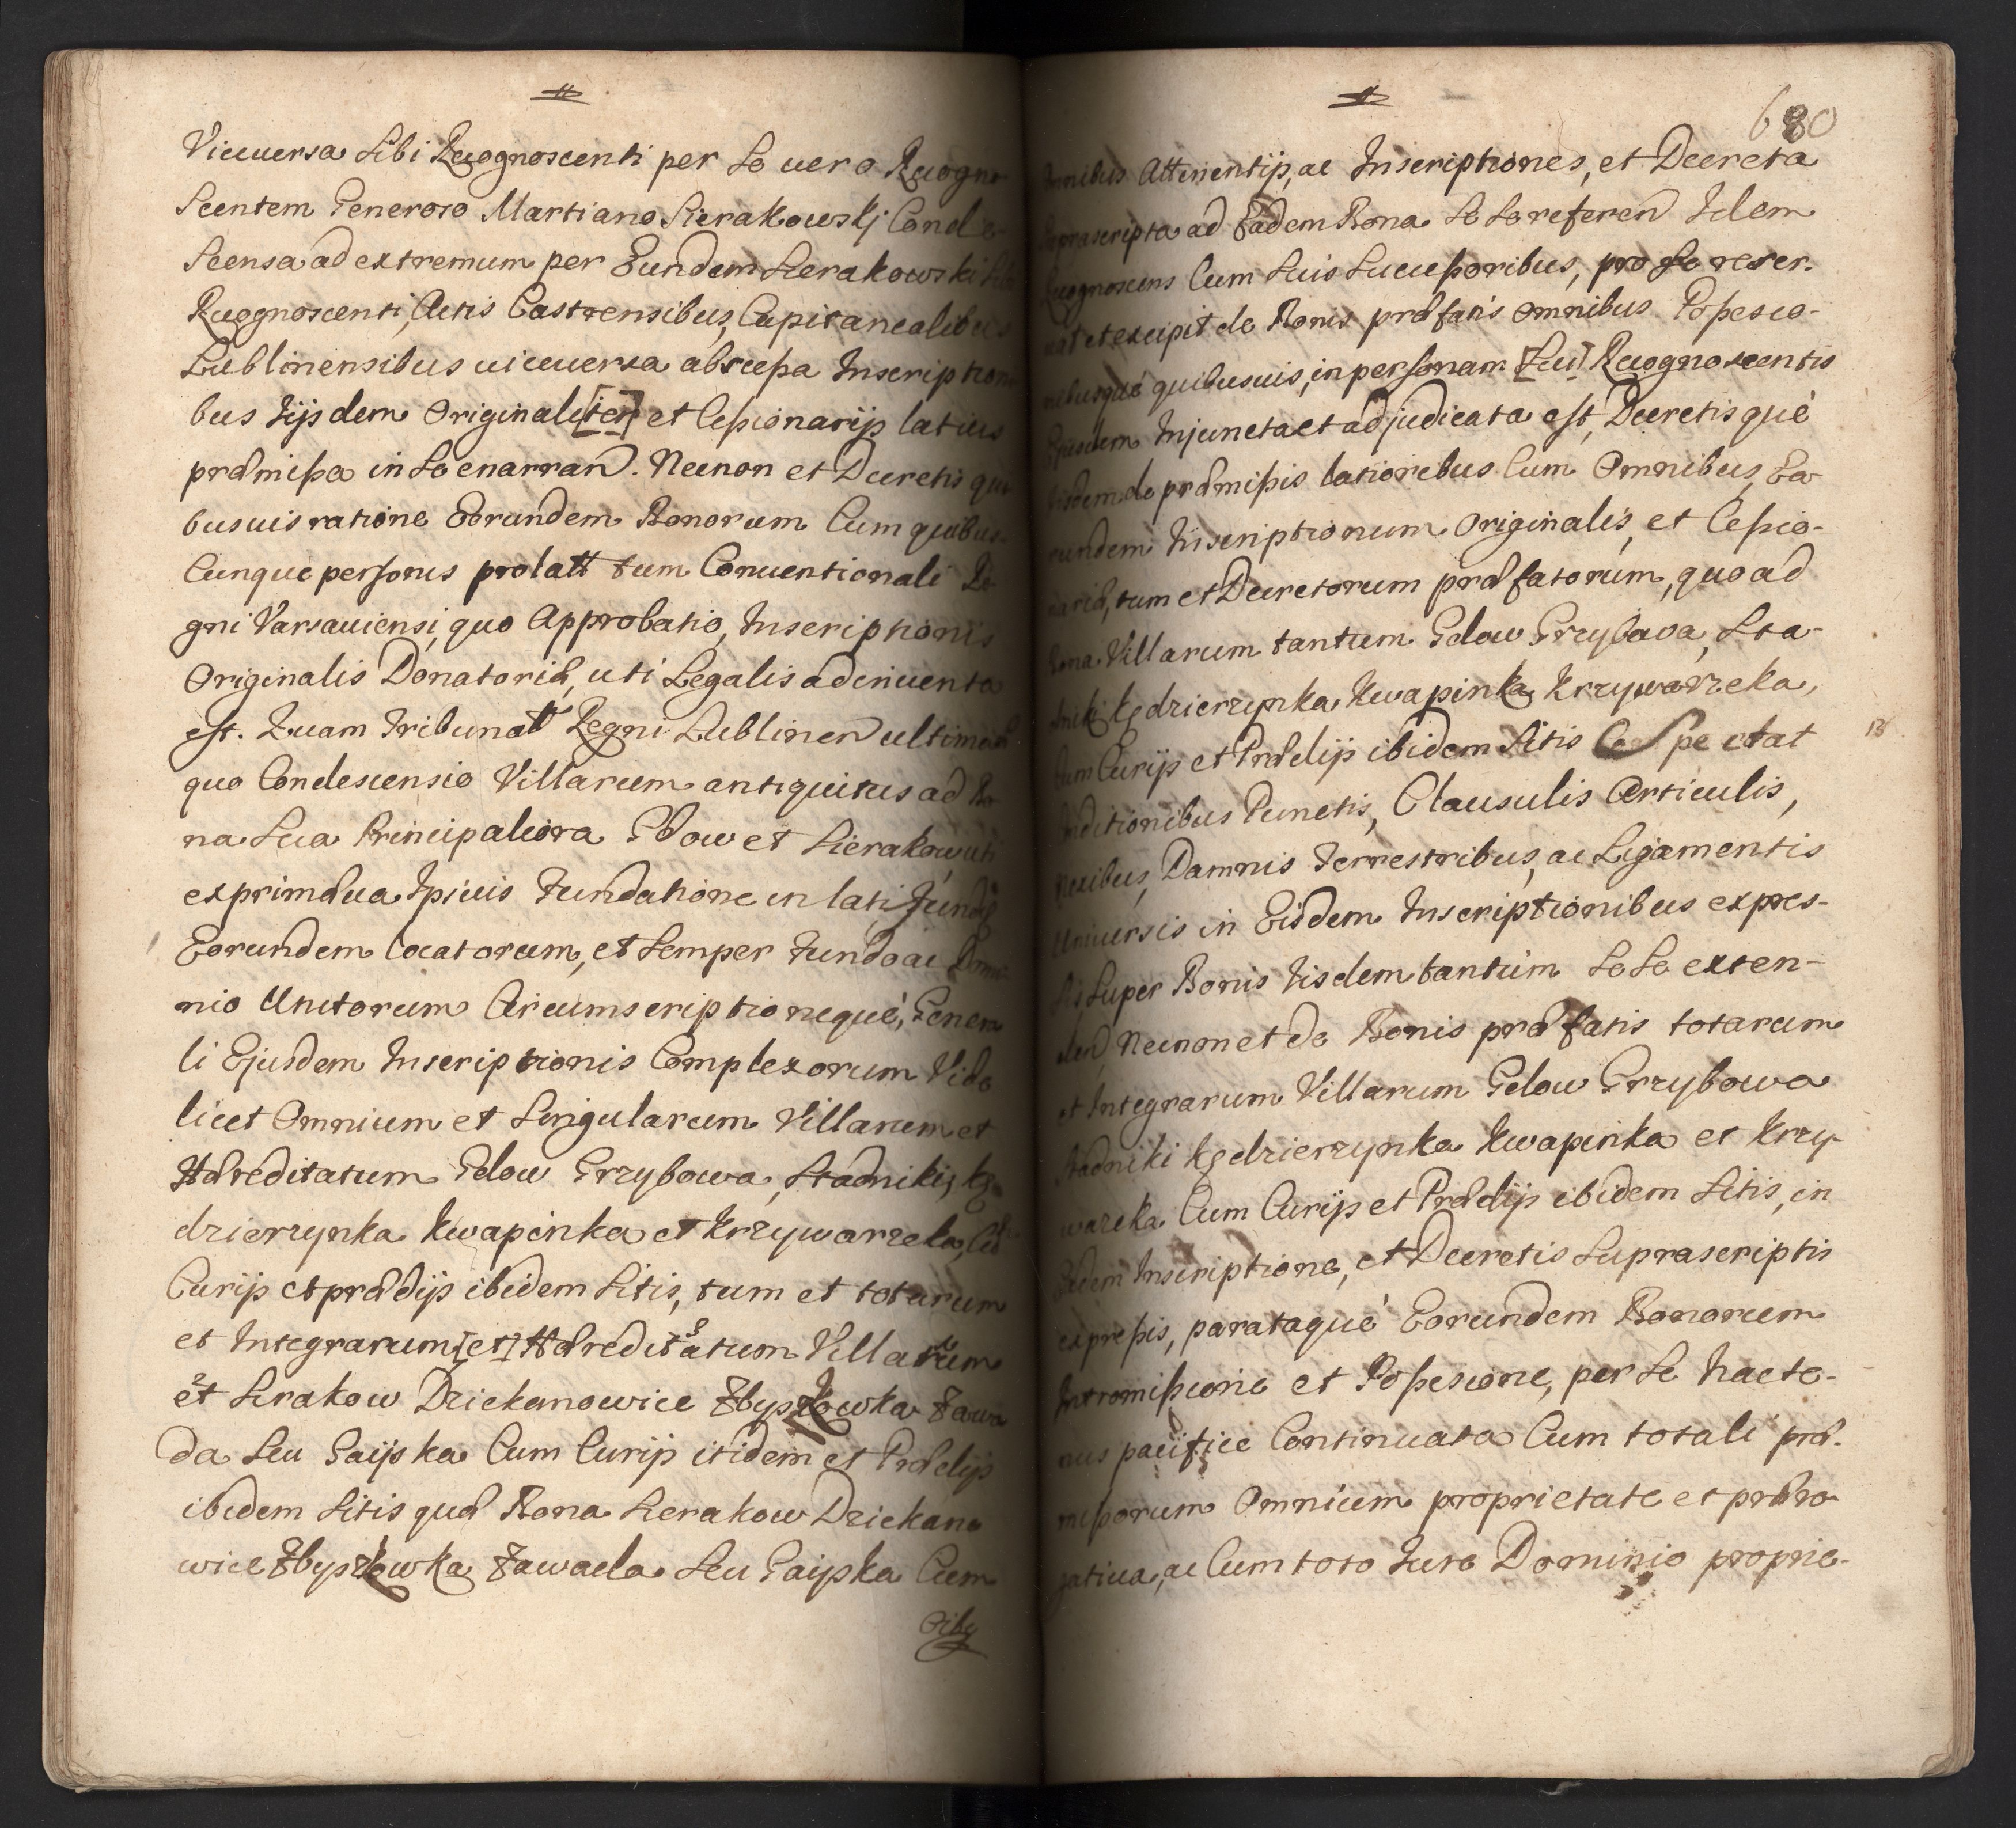 Viceuersa Sibi Recognoscenti per Se uero Recogno
Scentem Generoso Martiano Sierakowskj Conde
Scensa ad extremum per Eundem Sierakowski Sibi
Recognoscenti, Actis Castrensibus, Capitanealibus
Lublinensibus uiceuersa abscessa Inscription
bus Iijsdem Original[iter] et Cessionarijs latius
præmissa in Se enarran. Necnon et Decretis qui
busuis ratione Eorundem Bonorum Cum quibus
Cunque personis prolatt tum Conuentionali Re
gni Varsauiensi, quo Approbatio, Inscriptionis
Originalis Donatoriæ, uti Legalis adinuenta
est. Quam Tribunal Regni Lublinen ultimari
quo Condescensio Villarum antiquitus ad Bo
na Sua Principaliora Gdow et Sierakow uti
exprimæua Ipsius Fundatione in latifundijs
Eorundem locatorum, et Semper Fundo ac Domi
nio Unitorum Circumscriptioneque, Genera
li Ejusdem Inscriptionis Complexorum Vide
licet Omnium et Singularum Villarum et
Hæreditatum Gdow Grzybowa, Stadniki, Kę
dzierzynka Kwapinka et Krzyworzeka, Cum
Curijs et prædijs ibidem Sitis, tum et totarum
et Integrarum [et] Hæreditatum Villarum
et Sierakow Dziekanowice Zbyszowka Zawa
da Seu Gaijska Cum Curijs itidem et Prædijs
ibidem Sitis quæ Bona Sierakow Dziekano
wice Zbyszowka Zawada Seu Gaijska Cum
Oibg
680
Omnibus Attinentijs, ac Inscriptiones, et Decreta
Suprascripta ad Eadem Bona Se Se referen Idem
Recognoscens Cum Suis Successoribus, pro Se reser-
uat et excipit de Bonis præfatis Omnibus Possesio-
nibusque quibusuis, in personam [Seu] Recognoscentis
Ejusdem Injuncta et adjudicata est, Decretisque
Eisdem de præmissis latioribus Cum Omnibus, Ea
rundem Inscriptionum Originalis, et Cessio-
nariæ, tum et Decretorum præfatorum, quo ad
Bona Villarum tantum Gdow Grzybowa, Sta-
dniki Kędzierzynka, Kwapinka, Krzyworzeka,
Cum Curijs et Prædijs ibidem Sitis Spectat
18
Conditionibus Punctis, Clausulis Articulis,
Nexibus, Damnis Terrestribus, ac Ligamentis
Uniuersis in Eisdem Inscriptionibus expres-
sis, Super Bonis Iisdem tantum Se Se exten-
den Necnon et de Bonis præfatis totarum
et Integrarum Villarum Gdow Grzybowa
Stadniki Kędzierzynka Kwapinka et Krzy-
worzeka Cum Curijs et Prædijs ibidem Sitis, in
Eadem Inscriptione, et Decretis Suprascriptis
expressis, parataque Eorundem Bonorum
Intromissione et Possesione, per Se hacte-
nus pacifice Continuata Cum totali præ-
missorum Omnium proprietate et præro
gatiua, ac Cum toto Jure Dominio proprie-